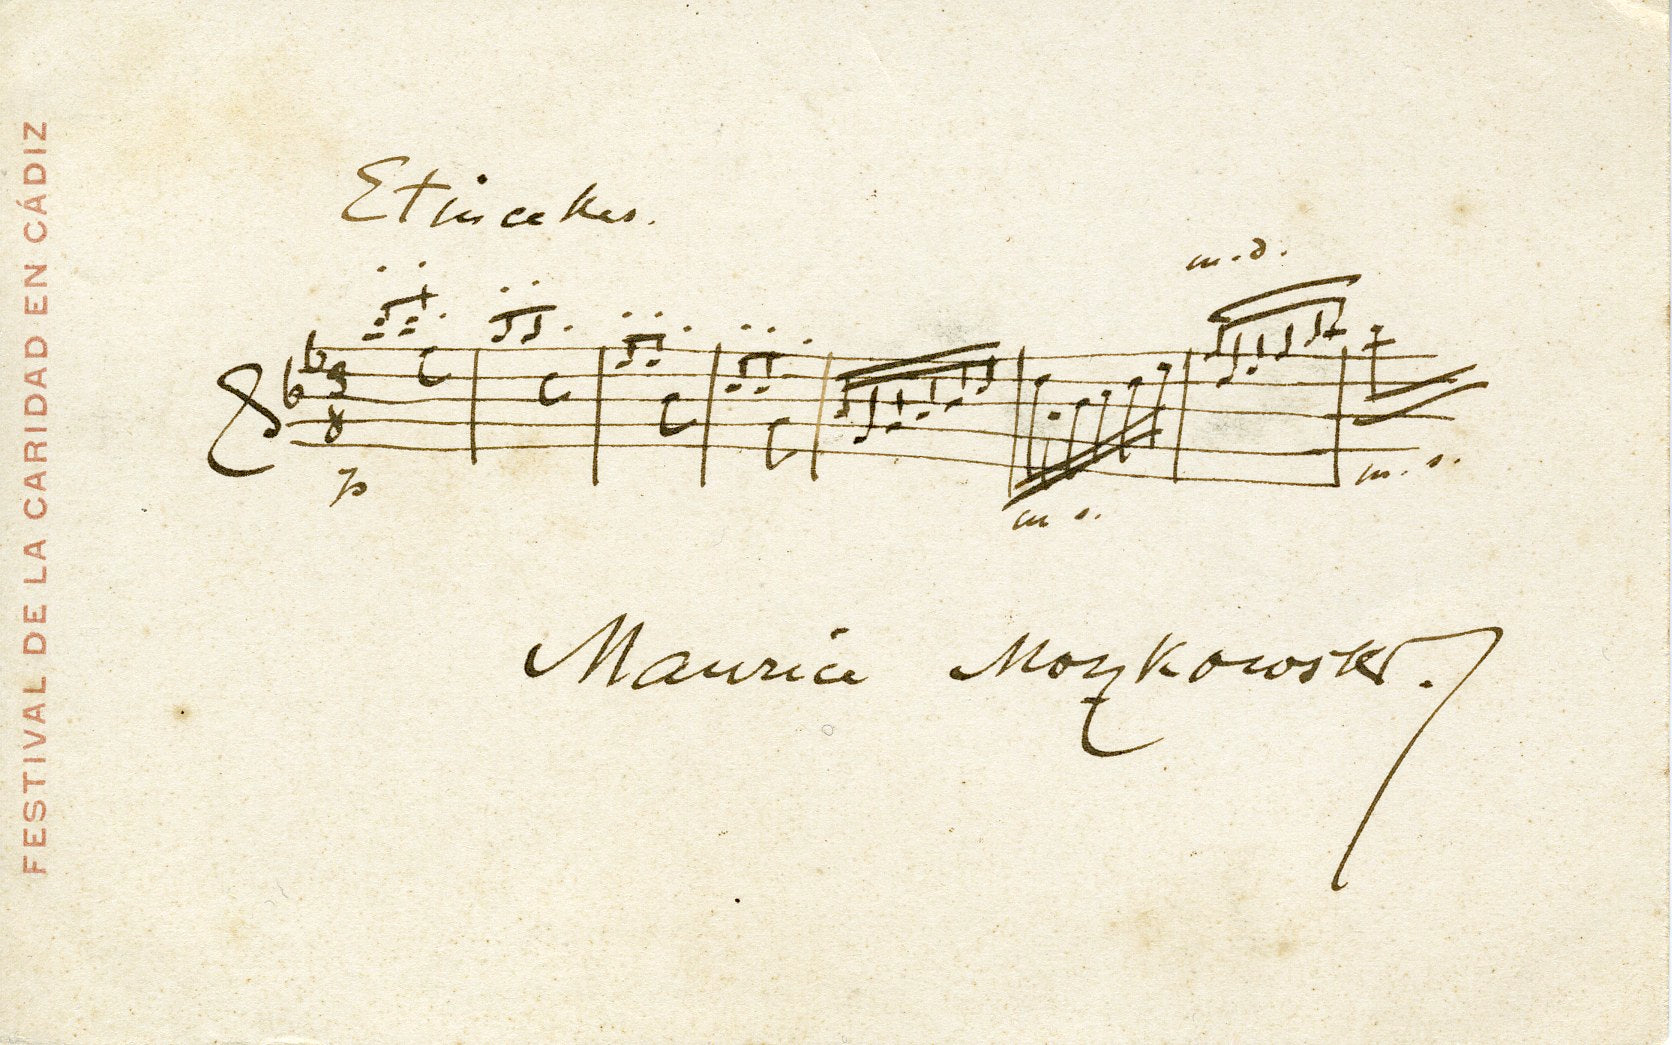 FESTIVAL DE LA CARIDAD EN CÁDIZ
Etincelles.
m.d.
3
8
p
m s.
m. s.
Maurice Moszkowski.